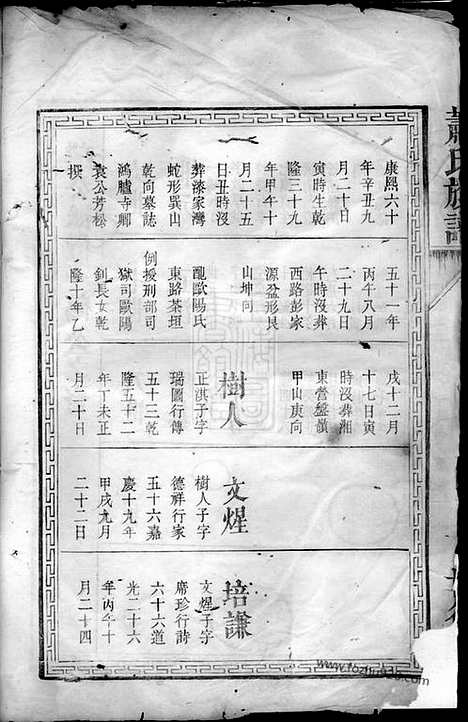 蕭氏族譜
康熙六十
年辛丑九
月二十日
寅時生乾
隆三十九
年甲午十
月二十五
日丑時沒
葬漆家灣
蛇形巽山
乾向墓誌
鴻臚寺卿
袁公芳松
撰
五十一年
丙午八月
二十九日
午時沒葬
西路彭家
源盆形艮
山坤向
配歐陽氏
東路茶垣
例授刑部司
獄司歐陽
釗長女乾
隆十年乙
戌十二月
十七日寅
時沒葬湘
東營盤嶺
甲山庚向
樹人
正淇子字
瑞圖行傳
五十三乾
隆五十二
年丁未正
月二十日
文煋
樹人子字
德祥行家
五十六嘉
慶十九年
甲戌九月
二十二日
培謙
文煋子字
席珍行詩
六十六道
光二十六
年丙午十
月二十四
www.fozhua8.com